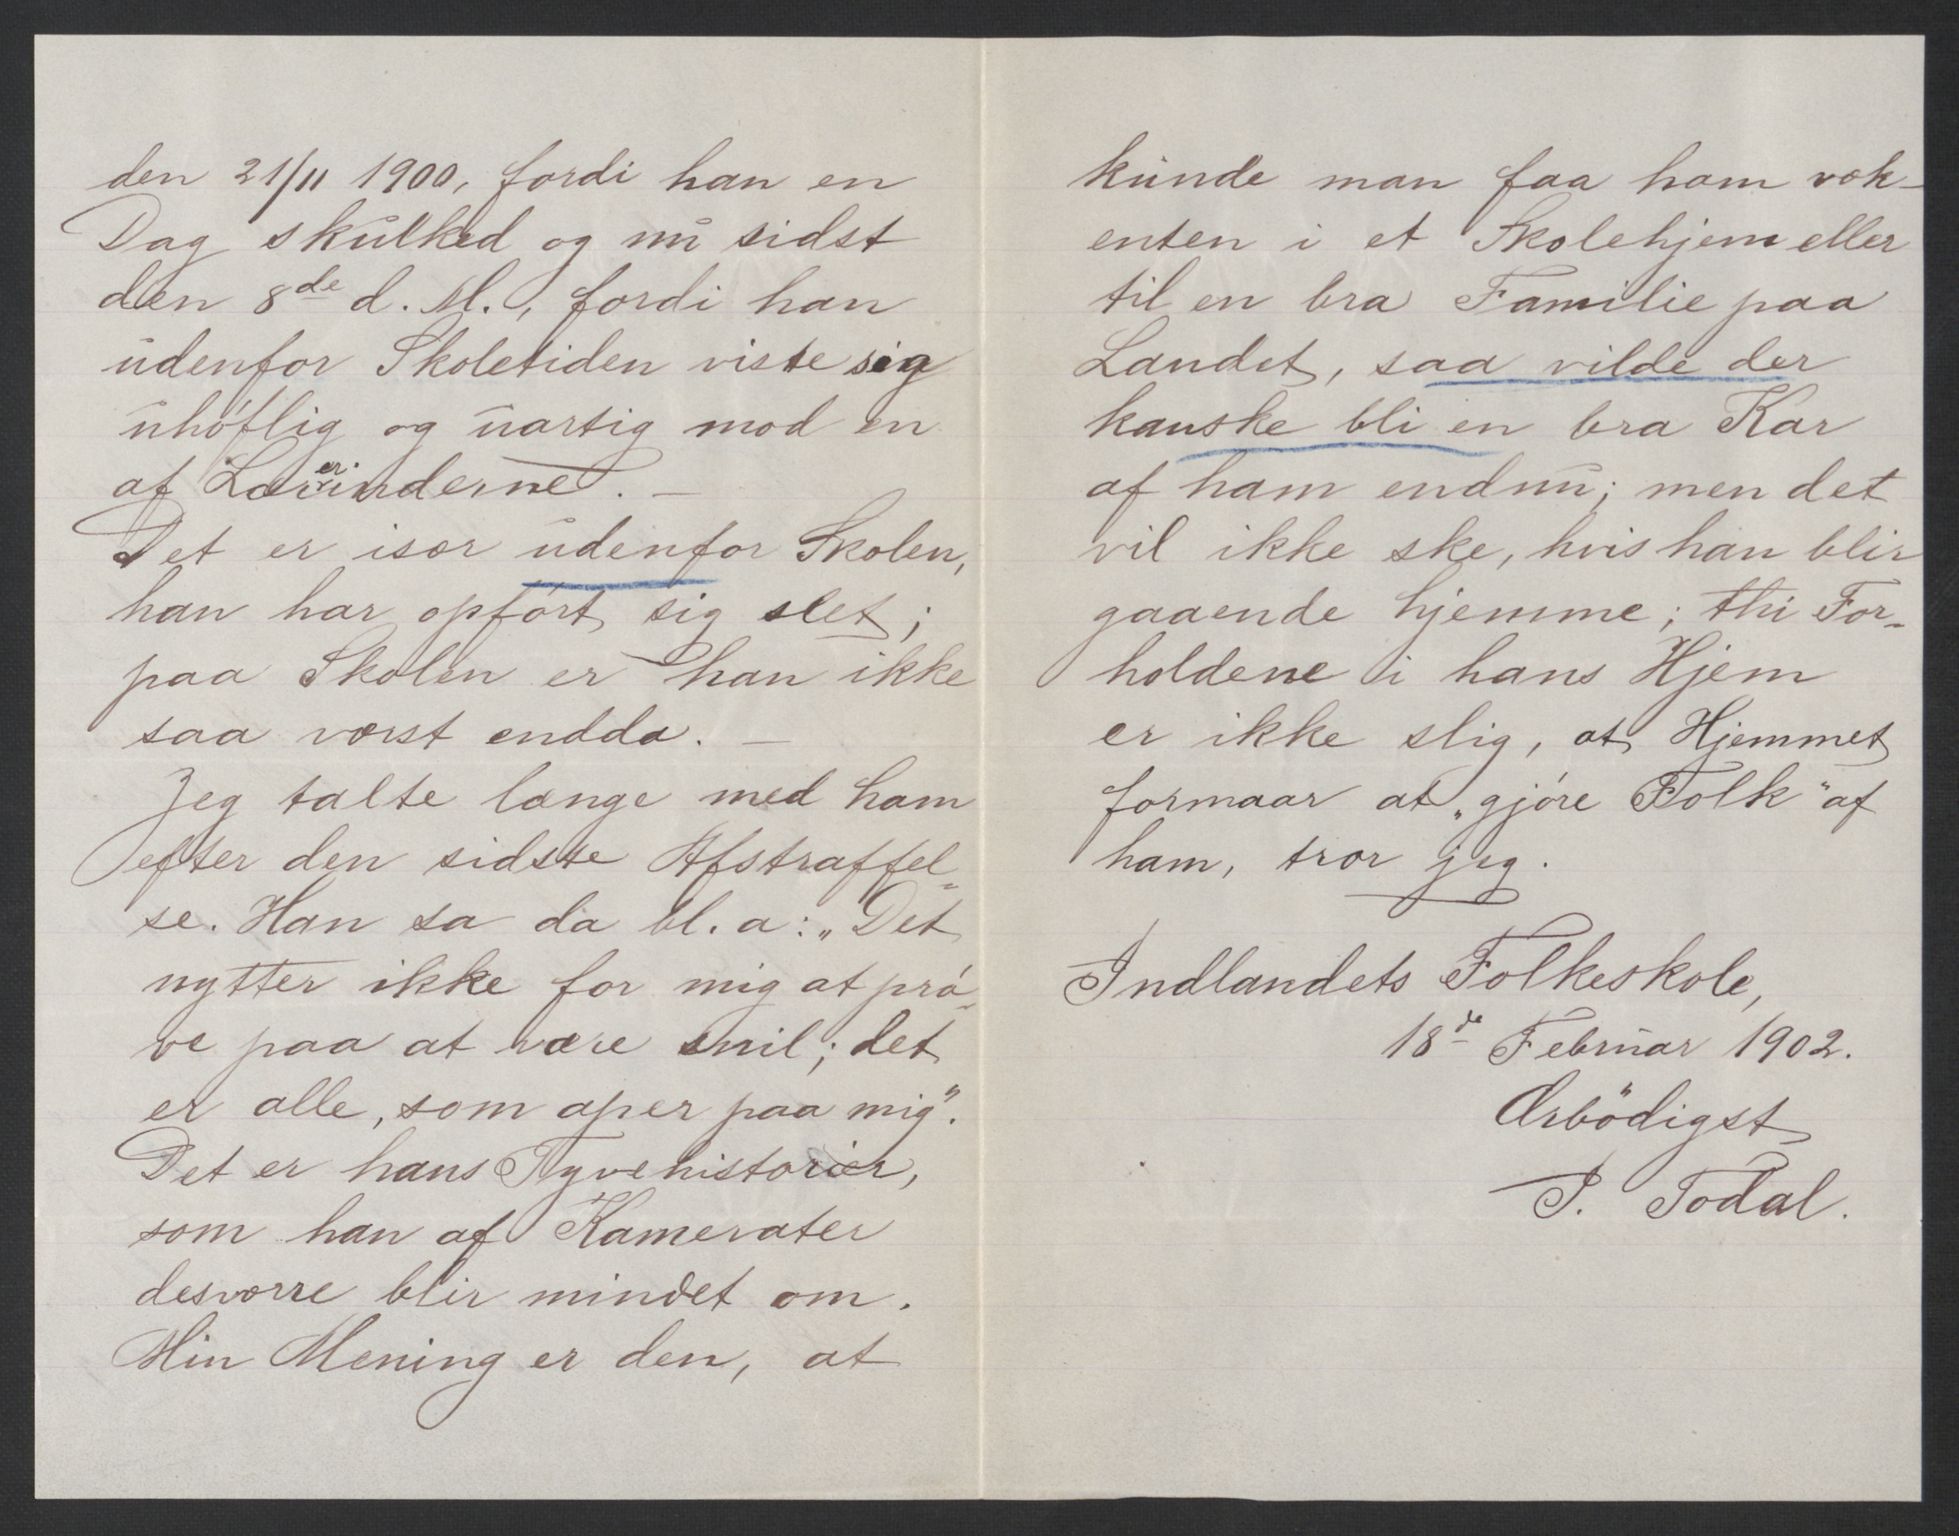 den 21/11 1900, fordi han en
Dag skulked og nu sidst
den 8de d. M., fordi han
udenfor Skoletiden viste sig
uhøflig og uartig mod en
af Lærerinderne. —
Det er især udenfor Skolen,
han har opført sig slet;
paa Skolen er han ikke
saa værst endda. —
Jeg talte længe med ham
efter den sidste Afstraffel-
se. Han sa da bl. a: „Det
nytter ikke for mig at prø-
ve paa at være snil; det
er alle, som aper paa mig”.
Det er hans Tyvehistorier,
som han af Kamerater
desværre blir mindet om.
Min Mening er den, at
kunde man faa ham
enten i et Skolehjem eller
til en bra Familie paa
Landet, saa vilde der
kanske bli en bra Kar
af ham endnu; men det
vil ikke ske, hvis han blir
gaaende hjemme; thi For-
holdene i hans Hjem
er ikke slig, at Hjemmet
formaar at „gjøre Folk” af
ham, tror jeg.
Indlandets Folkeskole,
18de Februar 1902.
Ærbödigst
P. Todal.